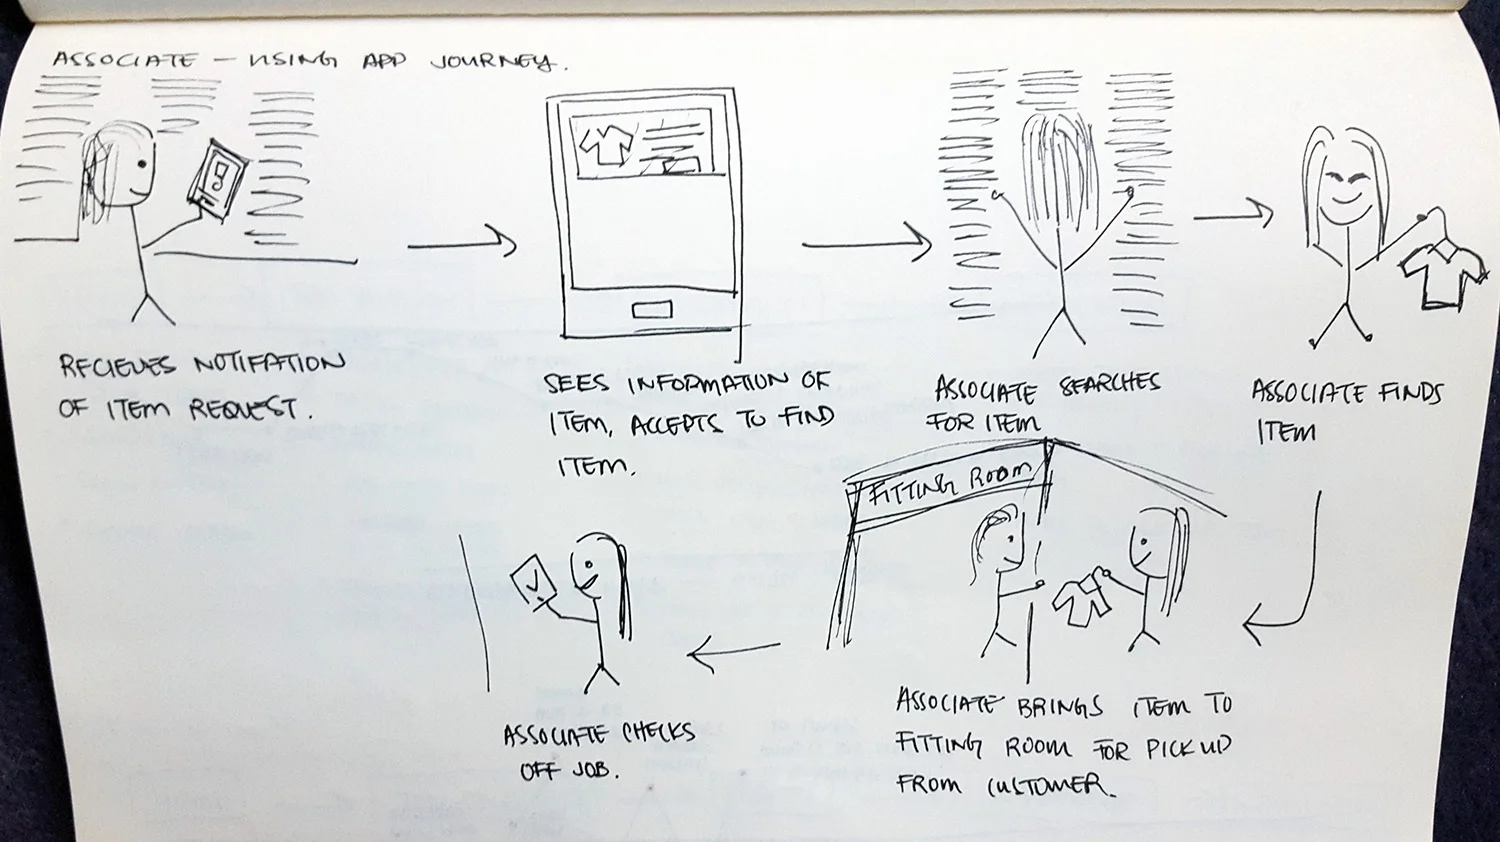 ASSOCIATE – USING APP JOURNEY.
RECIEVES NOTIFATION
OF ITEM REQUEST.
SEES INFORMATION OF
ITEM, ACCEPTS TO FIND
ITEM.
ASSOCIATE SEARCHES
FOR ITEM
ASSOCIATE FINDS
ITEM
FITTING ROOM
ASSOCIATE BRINGS ITEM TO
FITTING ROOM FOR PICK UP
FROM CUSTOMER.
ASSOCIATE CHECKS
OFF JOB.